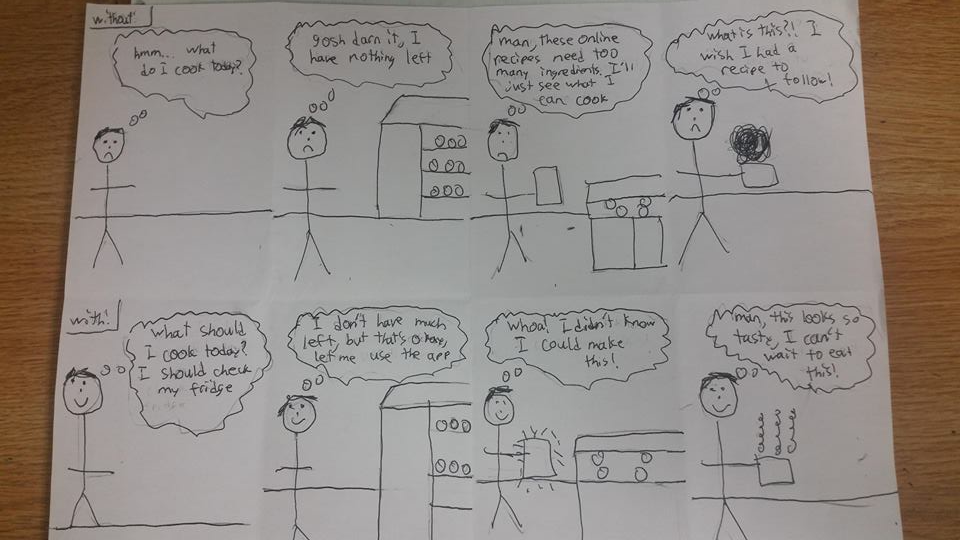 without!
hmm... what
do I cook today?
gosh darn it, I
have nothing left
man, these online
recipes need too
many ingredients. I'll
just see what I
can cook
what is this?! I
wish I had a
recipe to
follow!
with!
what should
I cook today?
I should check
my fridge
I don't have much
left, but that's okay,
let me use the app
whoa! I didn't know
I could make
this!
man, this looks so
tasty, I can't
wait to eat
this!